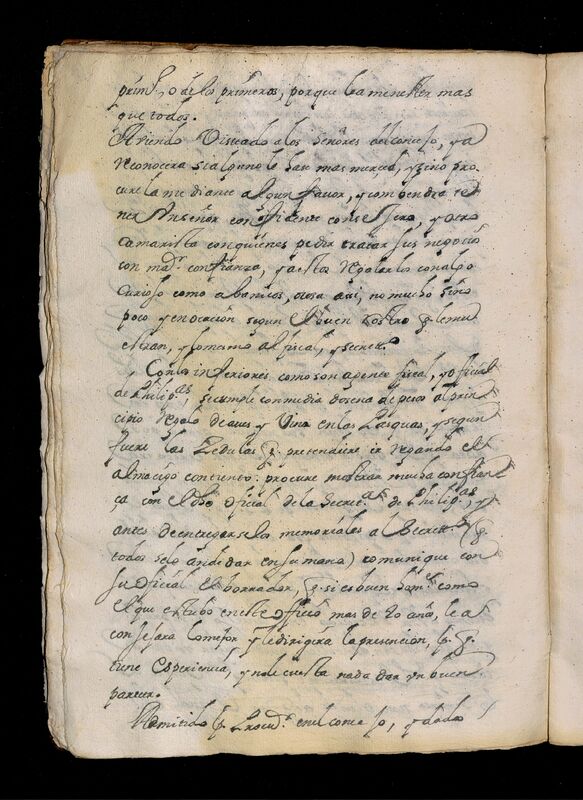 prim.º, ó á los primeros, porque lo á menester mas
que todos.
Aviendo Visitado a los señores del Consejo, ya
reconocera si alguno le hace mas merced, y sino pro
cure la mediante algun favor, y comprendra te
ner Un señor confidente consejero, y otro
camarista con quienes pedir tratar sus negocios
con maor. confianza, y a estos regalarlos con algo
curioso como abanicos, ó cosa assi, no mucho sino
poco y en ocasion segun el buen rostro q. le mu
estran, y lo mismo al fiscal, y secretº.
Con los inferiores como son agente fiscal, y oficial
de Philipas, se cumple con media dosena de pesos al prin
cipio regalo de aves y Vino en las Pasquas, y segun
fuere las Zedulas q. pretendiere ir regando el
almacigo con tiento. procure mostrar mucha confian
ça con el dho oficial de la Secretas. de Philipas, y
antes de entregarse los memoriales al Secretº. (q.
todos se lo án de dar en su mano) comunique con
su oficial el borrador, q. si es buen hombe. como
el que estubo en este officio mas de 20 años, le a
consejara lo mejor y le dirigira la presencion, p. q.
tiene Esperiencia, y no le cuesta nada dar un buen
parecer.
Admitido p. Procudor. en el consejo, y dado